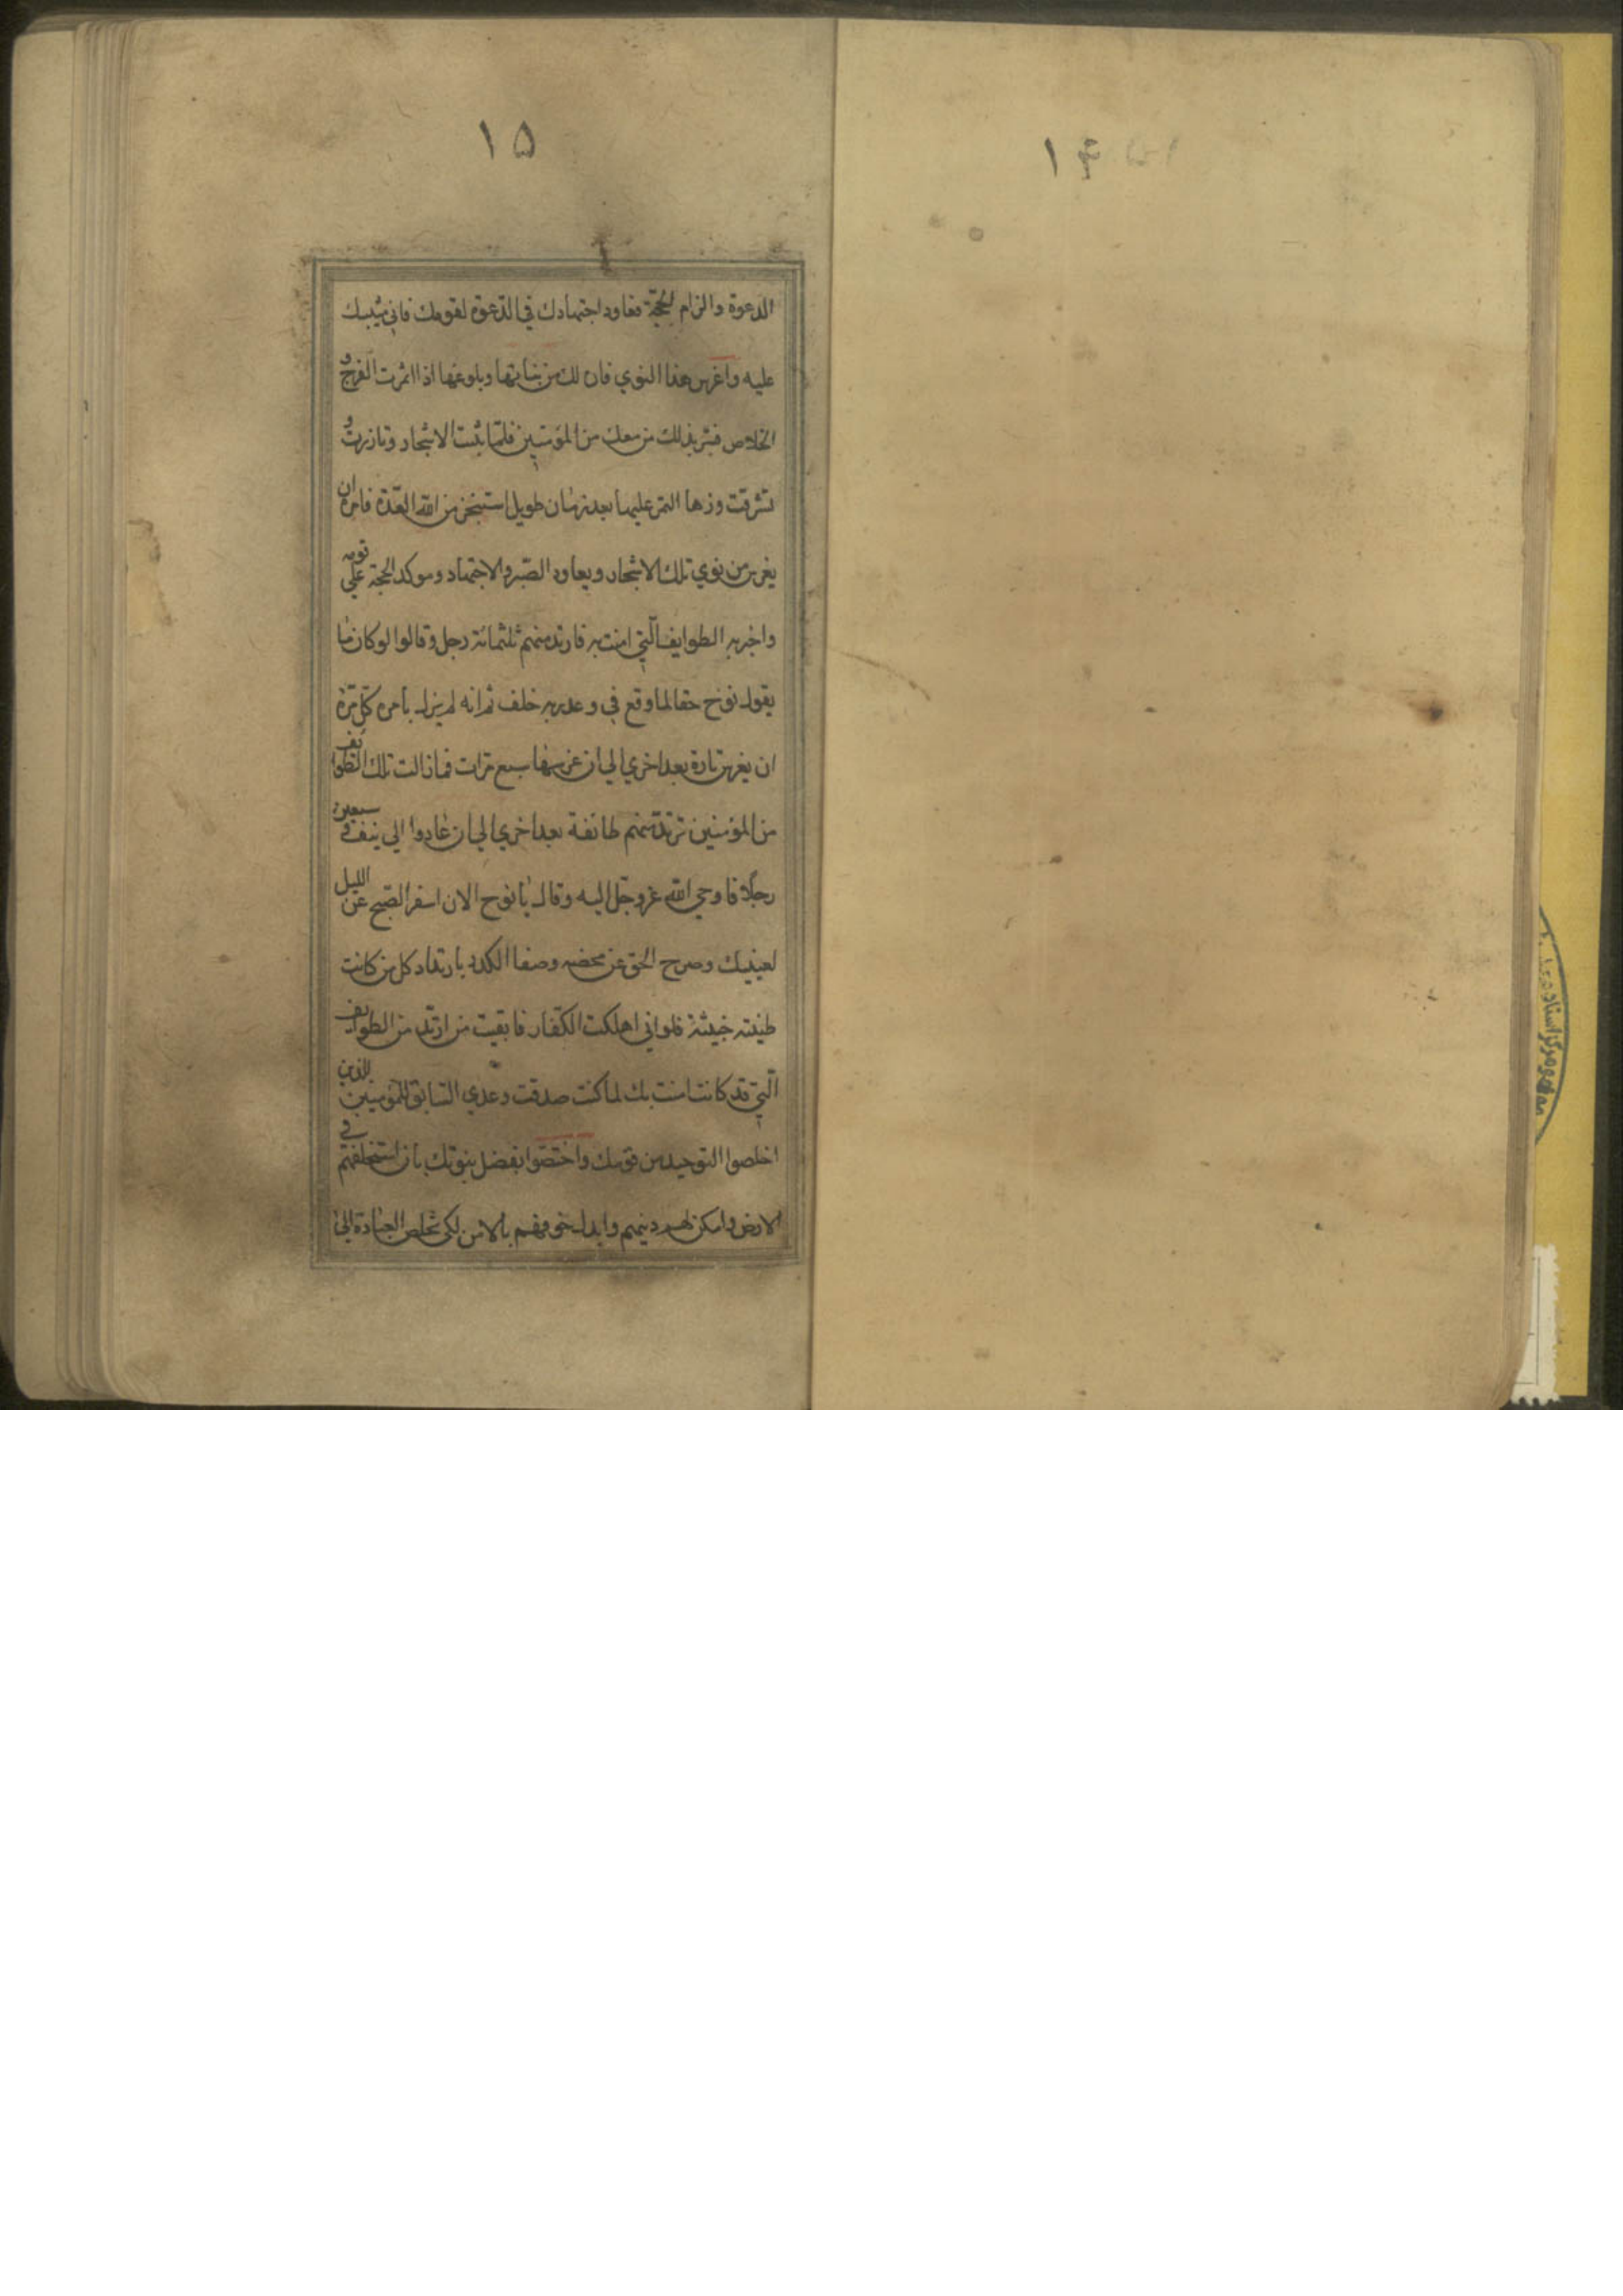 ۱۴
۱۵
الدعوة والزام الحجّة فعاود اجتهادك في الدّعوة لقومك فاني مثيبك
عليه واغرس هذا النوي فان لك من نباتها وبلوغها اذا اثمرت الفرج و
الخلاص فبشر بذلك من معك من المؤمنين فلمّا نبتت الاشجار وتازرت و
تشرقت وزها التمر عليها بعد زمان طويل استنجز من الله العدّة فامره ان
يغرس من نوي تلك الاشجار ويعاود الصّبر والاجتهاد وموكد الحجة علي قومه
واخبر به الطوايف الّتي امنت به فارتد منهم ثلثمائة رجل وقالوا لو كان ما
يقول نوح حقا لما وقع في وعد ربه خلف ثم انه لم يزل يأمره كل مرّة
ان يغرس تارة بعد اخري الي ان غرسها سبع مرّات فما زالت تلك الطوايف
من المؤمنين ترتدّ منهم طائفة بعد اخري الي ان عادوا الي نيف و سبعين
رجلا فاوحي الله عزوجّل اليه وقال يا نوح الان اسفر الصّبح عن الليل
لعينيك وصرح الحق عن محضه وصفا الكدر بارتداد كل من كانت
طينته خبيثة فلو اني اهلكت الكفّار فابقيت من ارتدّ من الطوايف
الّتي قد كانت امنت بك لما كنت صدقت وعدي السّابق للمؤمنين الذين
اخلصوا التوحيد من قومك واختصّوا بفضل نبوتك بان استخلفهم في
الارض وامكن لهم دينهم وابدل خوفهم بالامن لكي تخلص العبادة الي